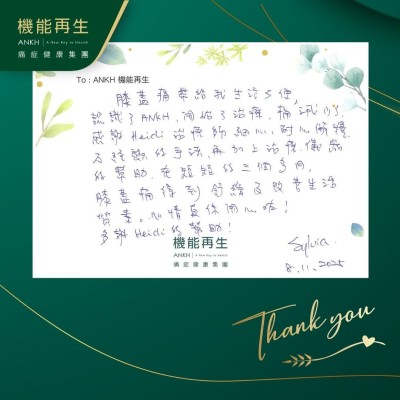 機能再生
ANKH | A New Key to Health
痛症健康集團
To : ANKH 機能再生
膝蓋痛帶給我生活不便,
認識了ANKH, 開始了治療, 痛減少了,
感謝Heidi治療師細心, 耐心解釋
及純熟的手法, 再加上治療儀器
的幫助, 在短短的三個多月,
膝蓋痛得到舒緩及改善生活
質素。心情真係開心咗!
多謝Heidi的幫助!
機能再生
ANKH | A New Key to Health
痛症健康集團
Sylvia
8.11.2025
Thank you